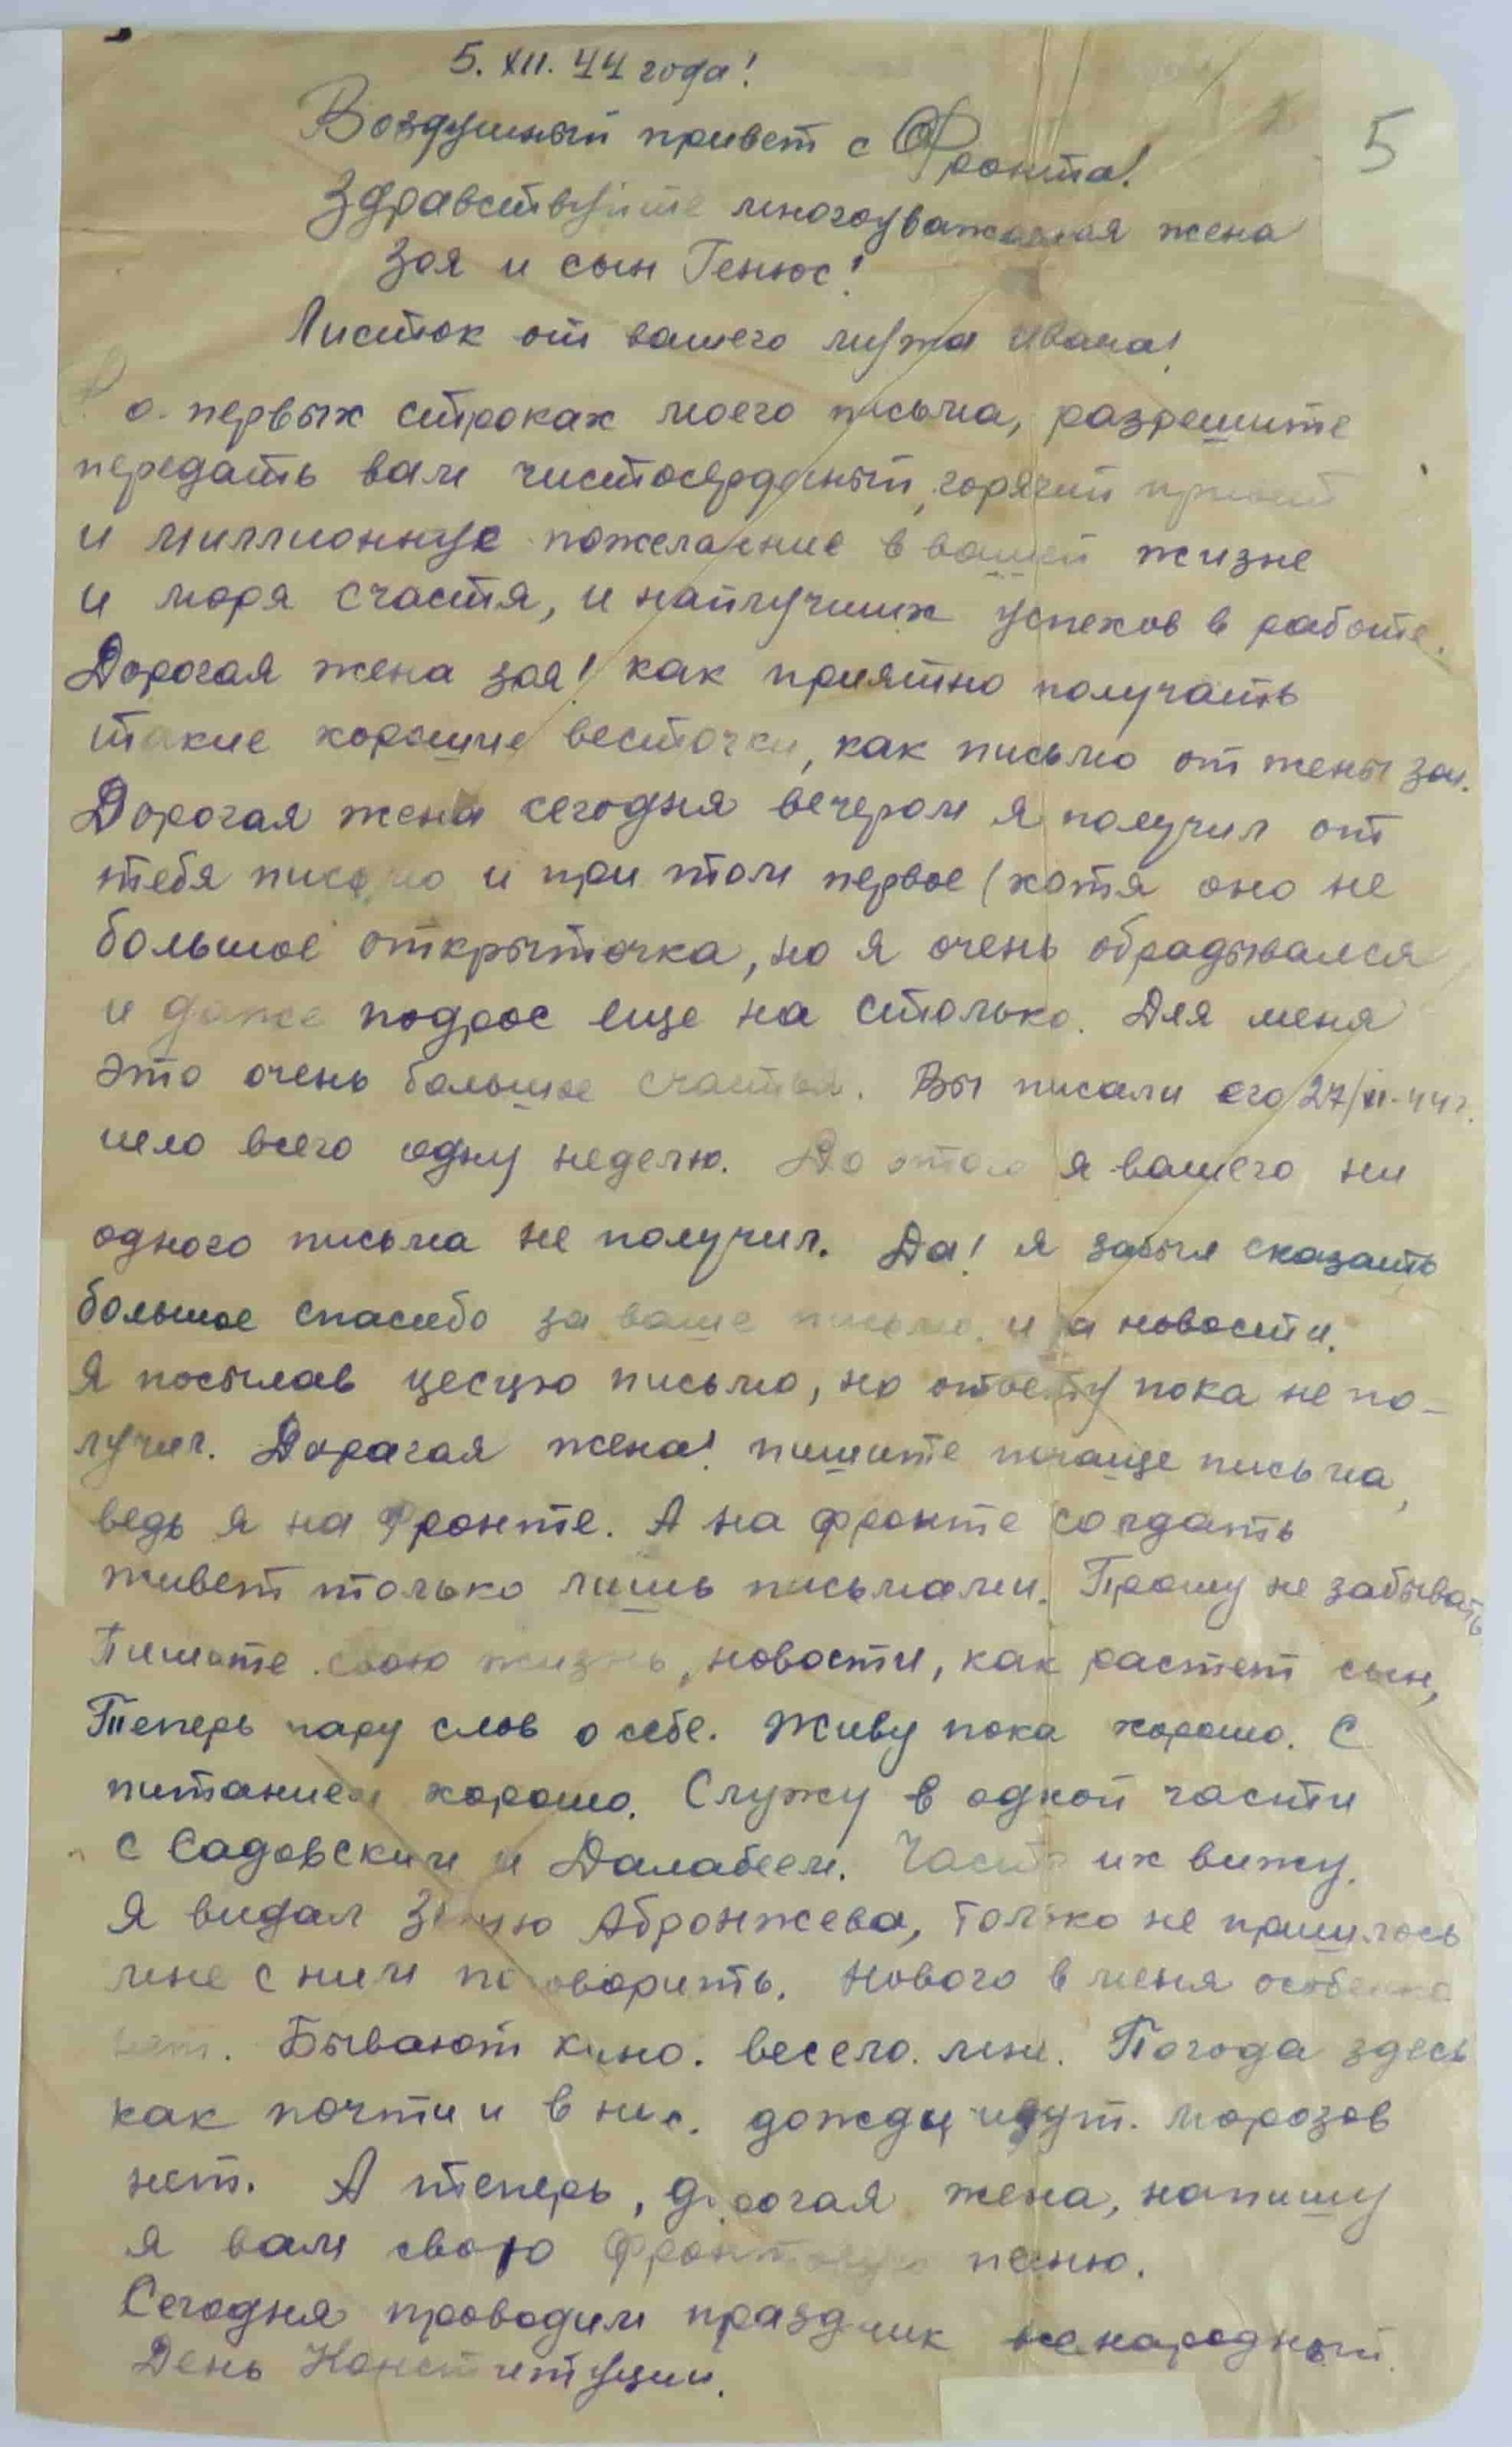 5. XII. 44 года!
5
Воздушный привет с Фронта!
Здравствуйте многоуважаемая жена
Зоя и сын Генюс!
Листок от вашего мужа Ивана!
Во первых строках моего письма, разрешите
передать вам чистосердечный, горячий привет
и миллионные пожелание в вашей жизне
и моря счастя, и найлучших успехов в работе.
Дорогая жена зоя! как приятно получать
такие хорошие весточки, как письмо от жены зои.
Дорогая жена сегодня вечером я получил от
тебя письмо и при том первое (хотя оно не
большое открыточка, но я очень обрадывался
и даже подрос еще на столько. Для меня
это очень большое счастья. Вы писали его 27/XI-44г.
шло всего одну неделю. До этого я вашего ни
одного письма не получил. Да! я забыл сказать
большое спасибо за ваше письмо и за новости.
Я посылав письмо, но ответу пока не по-
лучил. Дорагая жена! пишите почаще письма,
ведь я на Фронте. А на фронте солдать
живет только лишь письмами. Прошу не забывать
Пишите свою жизнь, новости, как растет сын,
Теперь пару слов о себе. Живу пока хорошо. С
питанием хорошо. Служу в одной части
с Садовским и Далабеем. Часто их вижу.
Я видал Абронжева, только не пришлось
мне с ним поговорить. Нового в меня особенно
нет. Бывают кино. весело. мне. Погода здесь
как почти и в нас. дожди идут. морозов
нет. А теперь, дорогая жена, напишу
я вам свою фронтовую песню.
Сегодня проводим праздник всенародный
День Конституции.